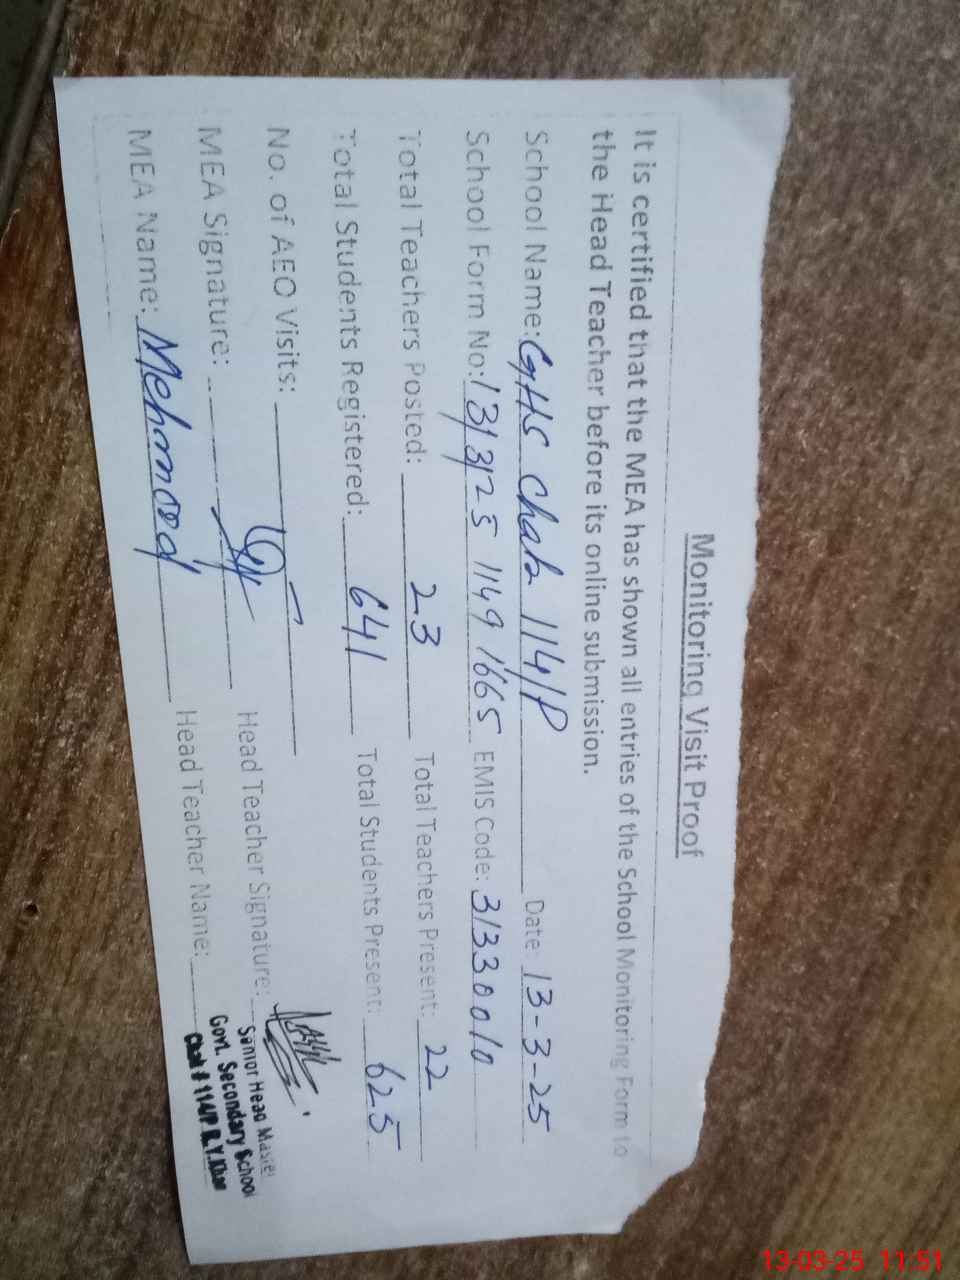 Monitoring Visit Proof
It is certified that the MEA has shown all entries of the School Monitoring Form to
the Head Teacher before its online submission.
School Name: GHS Chak 114/P Date: 13-3-25
School Form No: 13/3/25 1149 1665 EMIS Code: 31330010
Total Teachers Posted: 23 Total Teachers Present: 22
Total Students Registered: 641 Total Students Present: 625
No. of AEO Visits: —
MEA Signature: Head Teacher Signature:
MEA Name: Mehmood Head Teacher Name:
Senior Head Master
Govt. Secondary School
Chak # 114/P R.Y.Khan
13-03-25 11:51